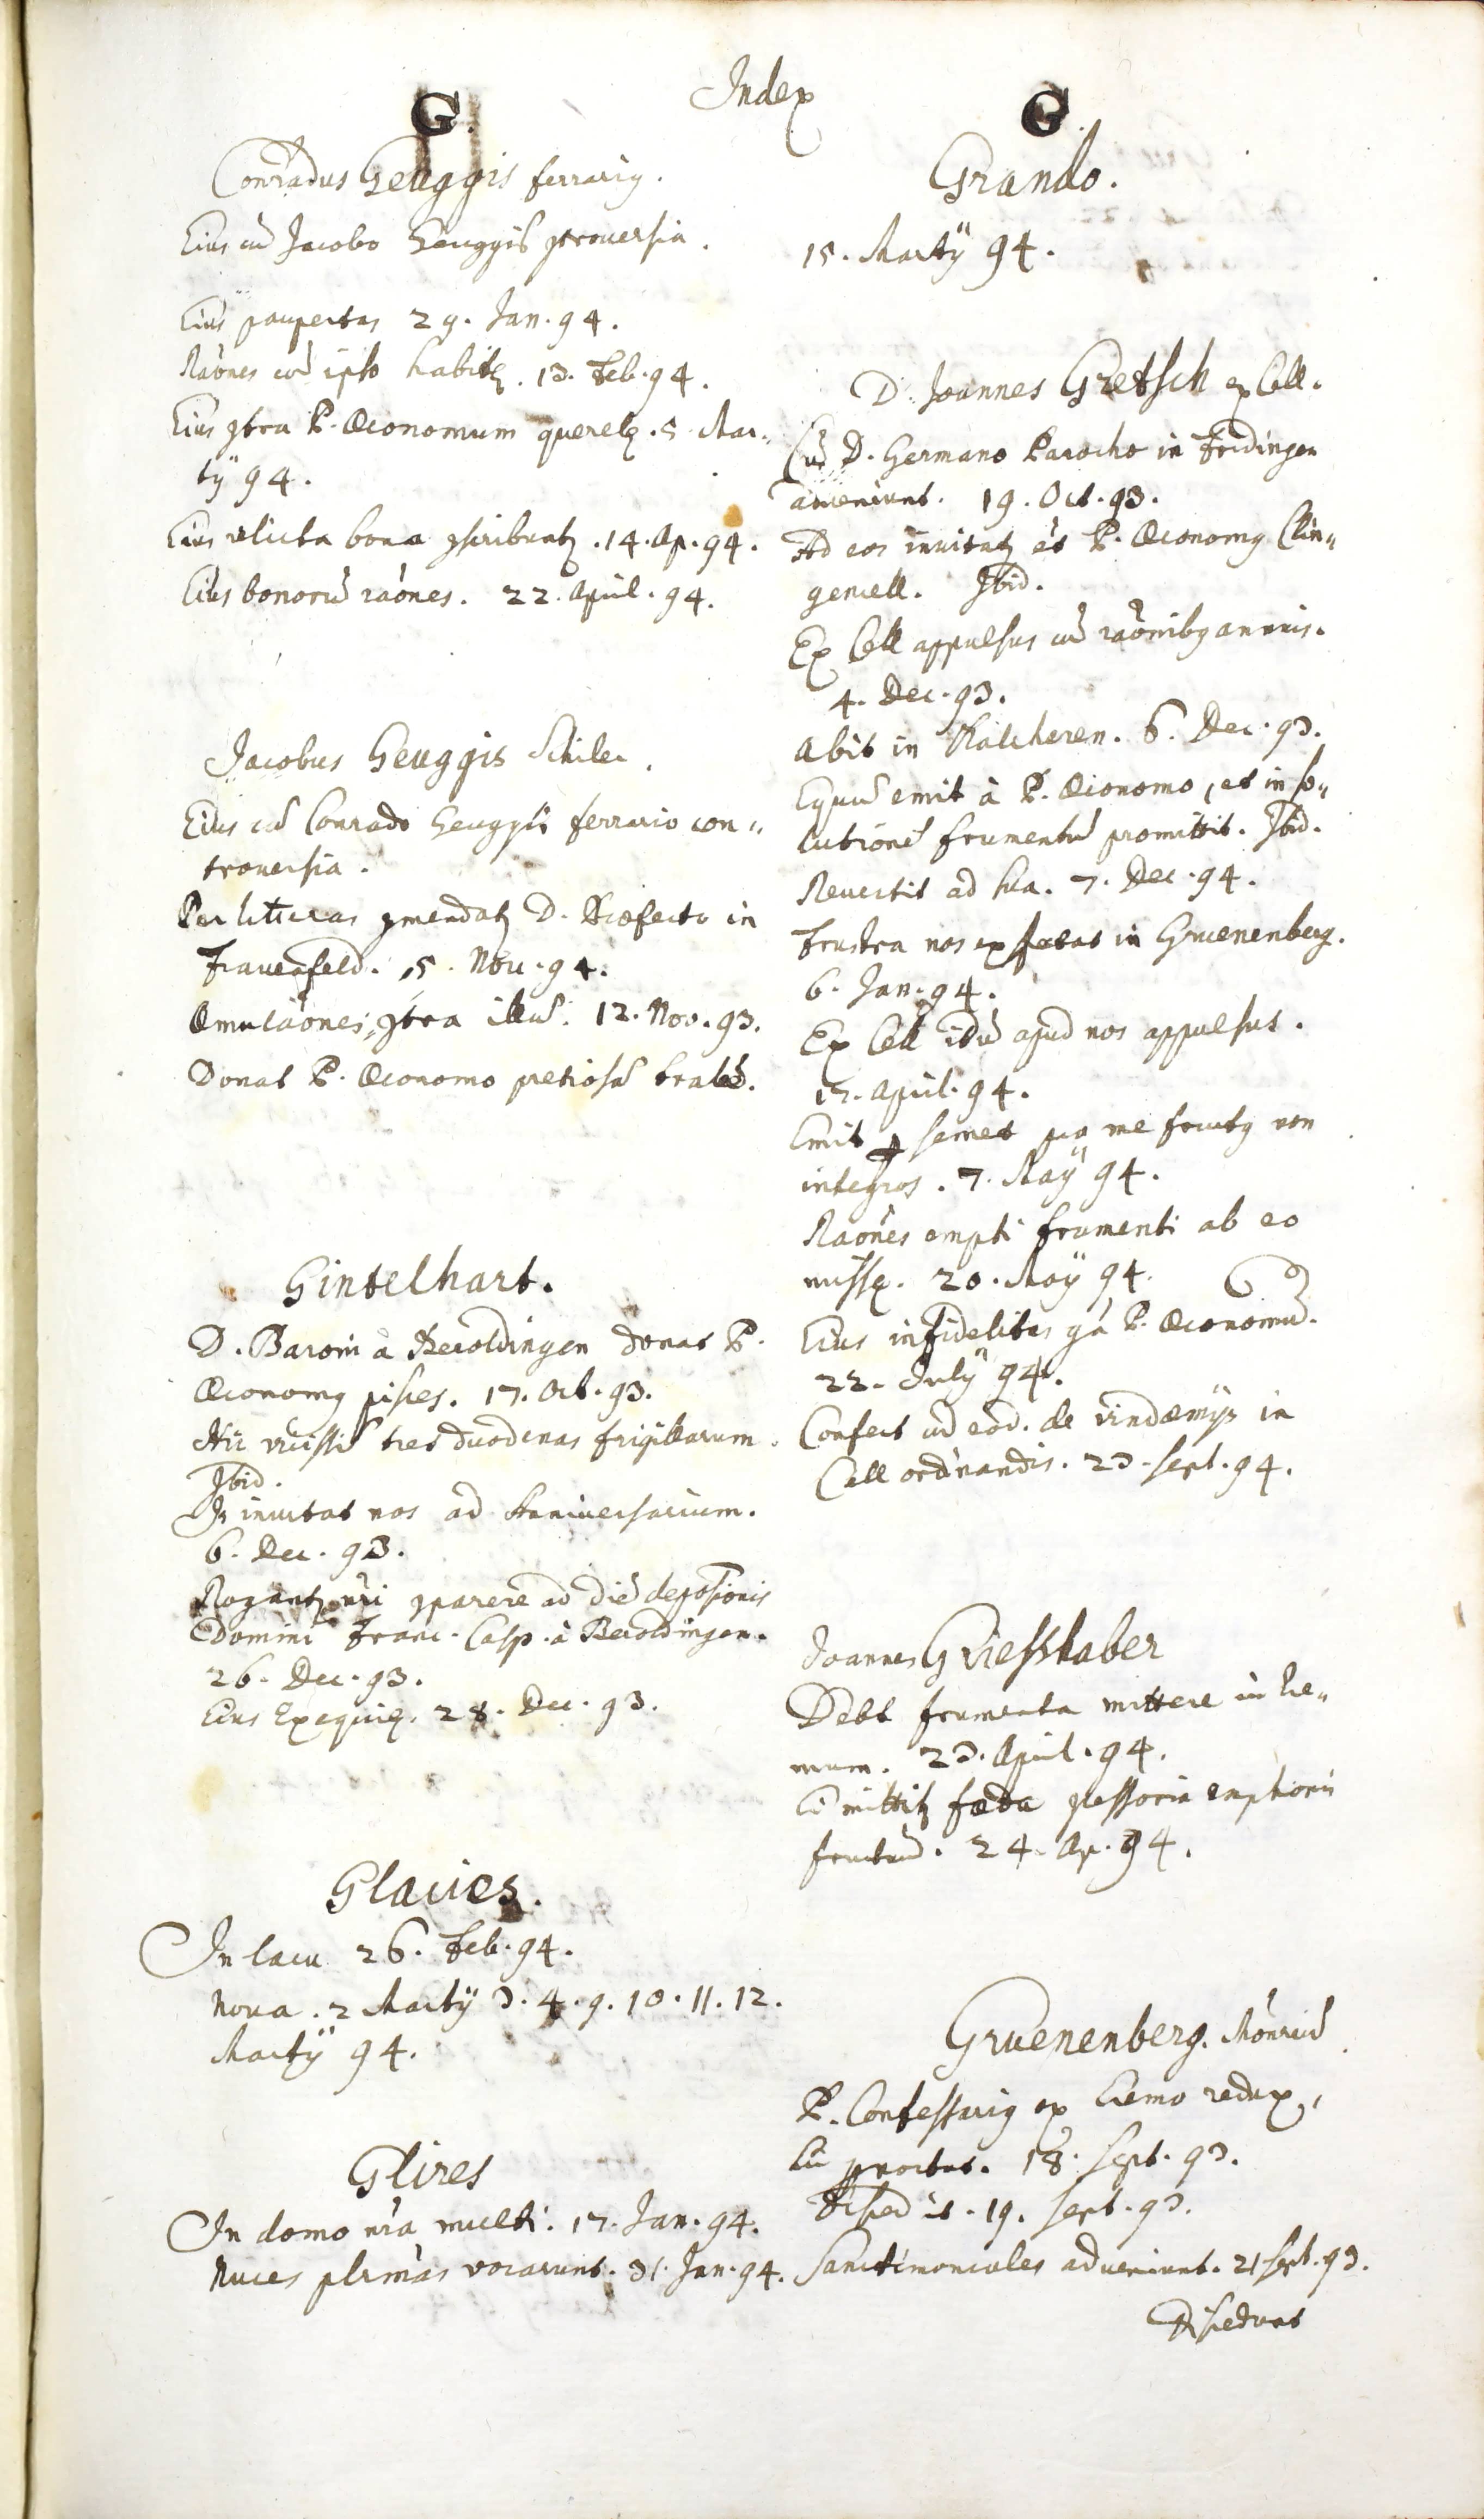 Index
G.
Conradus Geuggis ferrarig.
Eius cū Jacobo Geuggis gtrouersia.
Eius paupertas 29. Jan. 94.
Raōnes cū ipso habitę. 13. Feb. 94.
Eius gtra P. Œconomum querelę. 5. Mar„
tÿ 94.
Eius relicta bona gscribuntꝫ. 14. Ap. 94.
Eius bonorū raōnes. 22. April. 94.
Jacobus Geuggis Schiler.
Eius cū Conrado Geuggis ferrario con„
trouersia.
Per litteras gmendatꝫ D. Præfecto in
Frauenfeld. 5. Nov. 94.
Æmulaōnes gtra illū. 12. Nov. 93.
Donat P. Œconomo pretiosā trabeā.
Gintelhart.
D. Baroni à Beroldingen donat P.
Œconomg pisces. 17. Oct. 93.
Hic vicissī tres duodenas frigillarum.
Ibid.
Is inuitat nos ad Anniuersarium.
6. Dec. 93.
Rogantꝫ nři gparere ad diē deposionis
Domini Franc. Casp. à Beroldingen.
26. Dec. 93.
Eius Exequię. 28. Dec. 93.
Glacies.
In lacu 26. Feb. 94.
Nova. 2 Martÿ 3. 4. 9. 10. 11. 12.
Martÿ 94.
Glires
In domo nřa multi. 17. Jan. 94.
Nuces plrimas vorarunt. 31. Jan. 94.
G.
Grando.
15. Martÿ 94.
D. Joannes Gretsch ex Cell.
Cū D. Germano Parocho in Fridingen
adueniunt. 19. Oct. 93.
Ad eos inuitatꝫ et P. Œconomg Clin„
genzell. Ibid.
Ex Cell appulsus cū raōnibg annuis.
4. Dec. 93.
Abit in Kalcheren. 6. Dec. 93.
Equū emit à P. Œconomo, et in so„
lutionē frumentū promittit. Ibid.
Reuertit ad sua. 7. Dec. 94.
Frustra nos expectat in Gruenenberg.
6. Jan. 94.
Ex Cell itū apud nos appulsus.
12. April. 94.
Emit p semet pro me fructg non
integros. 7. Maÿ 94.
Raōnes empti frumenti ab eo
missę. 20. Maÿ 94.
Eius infidelitas gā P. Œconomū.
22. Julÿ 94.
Confert cū eod. de vindemÿs in
Cell ordinandis. 23. Sept. 94.
Joannes Griesshaber
Debt frumenta mittere in Ere„
mum. 23. April. 94.
Ei mittitꝫ fœda gfessoria emptionis
fructuū. 24. Ap. 94.
Gruenenberg. Mōnriū
P. Confessarig ex Eremo redux,
hic pnoctat. 18. Sept. 93.
Discedit. 19. Sept. 93.
Sanctimoniales adueniunt. 21 Sept. 93.
Discedunt